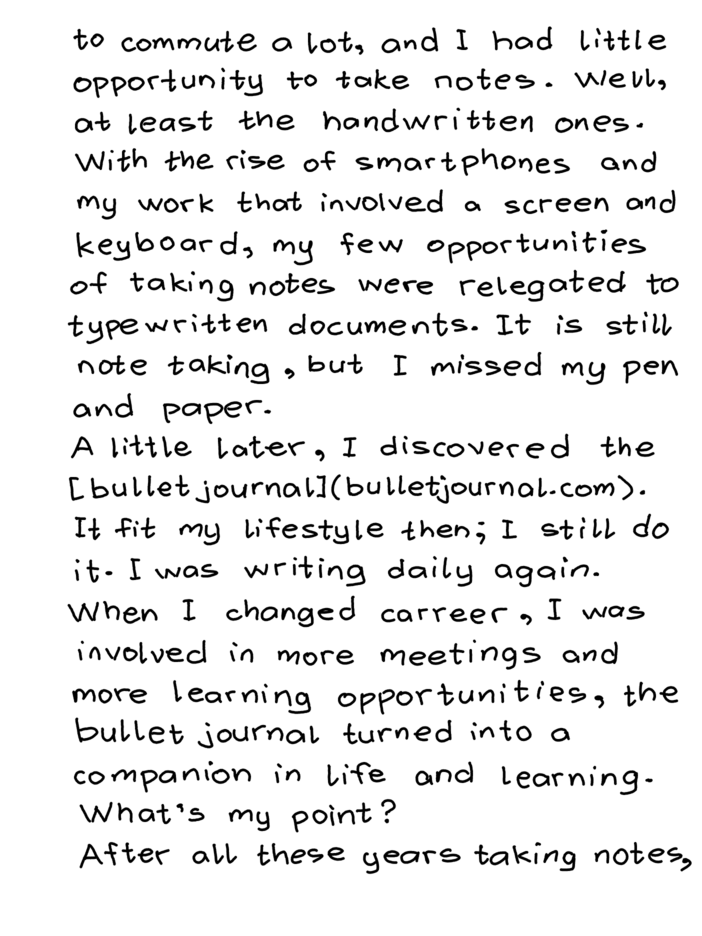 to commute a lot, and I had little
opportunity to take notes. Well,
at least the handwritten ones.
With the rise of smartphones and
my work that involved a screen and
keyboard, my few opportunities
of taking notes were relegated to
typewritten documents. It is still
note taking, but I missed my pen
and paper.
A little later, I discovered the
[bullet journal](bulletjournal.com).
It fit my lifestyle then; I still do
it. I was writing daily again.
When I changed carreer, I was
involved in more meetings and
more learning opportunities, the
bullet journal turned into a
companion in life and learning.
What's my point?
After all these years taking notes,